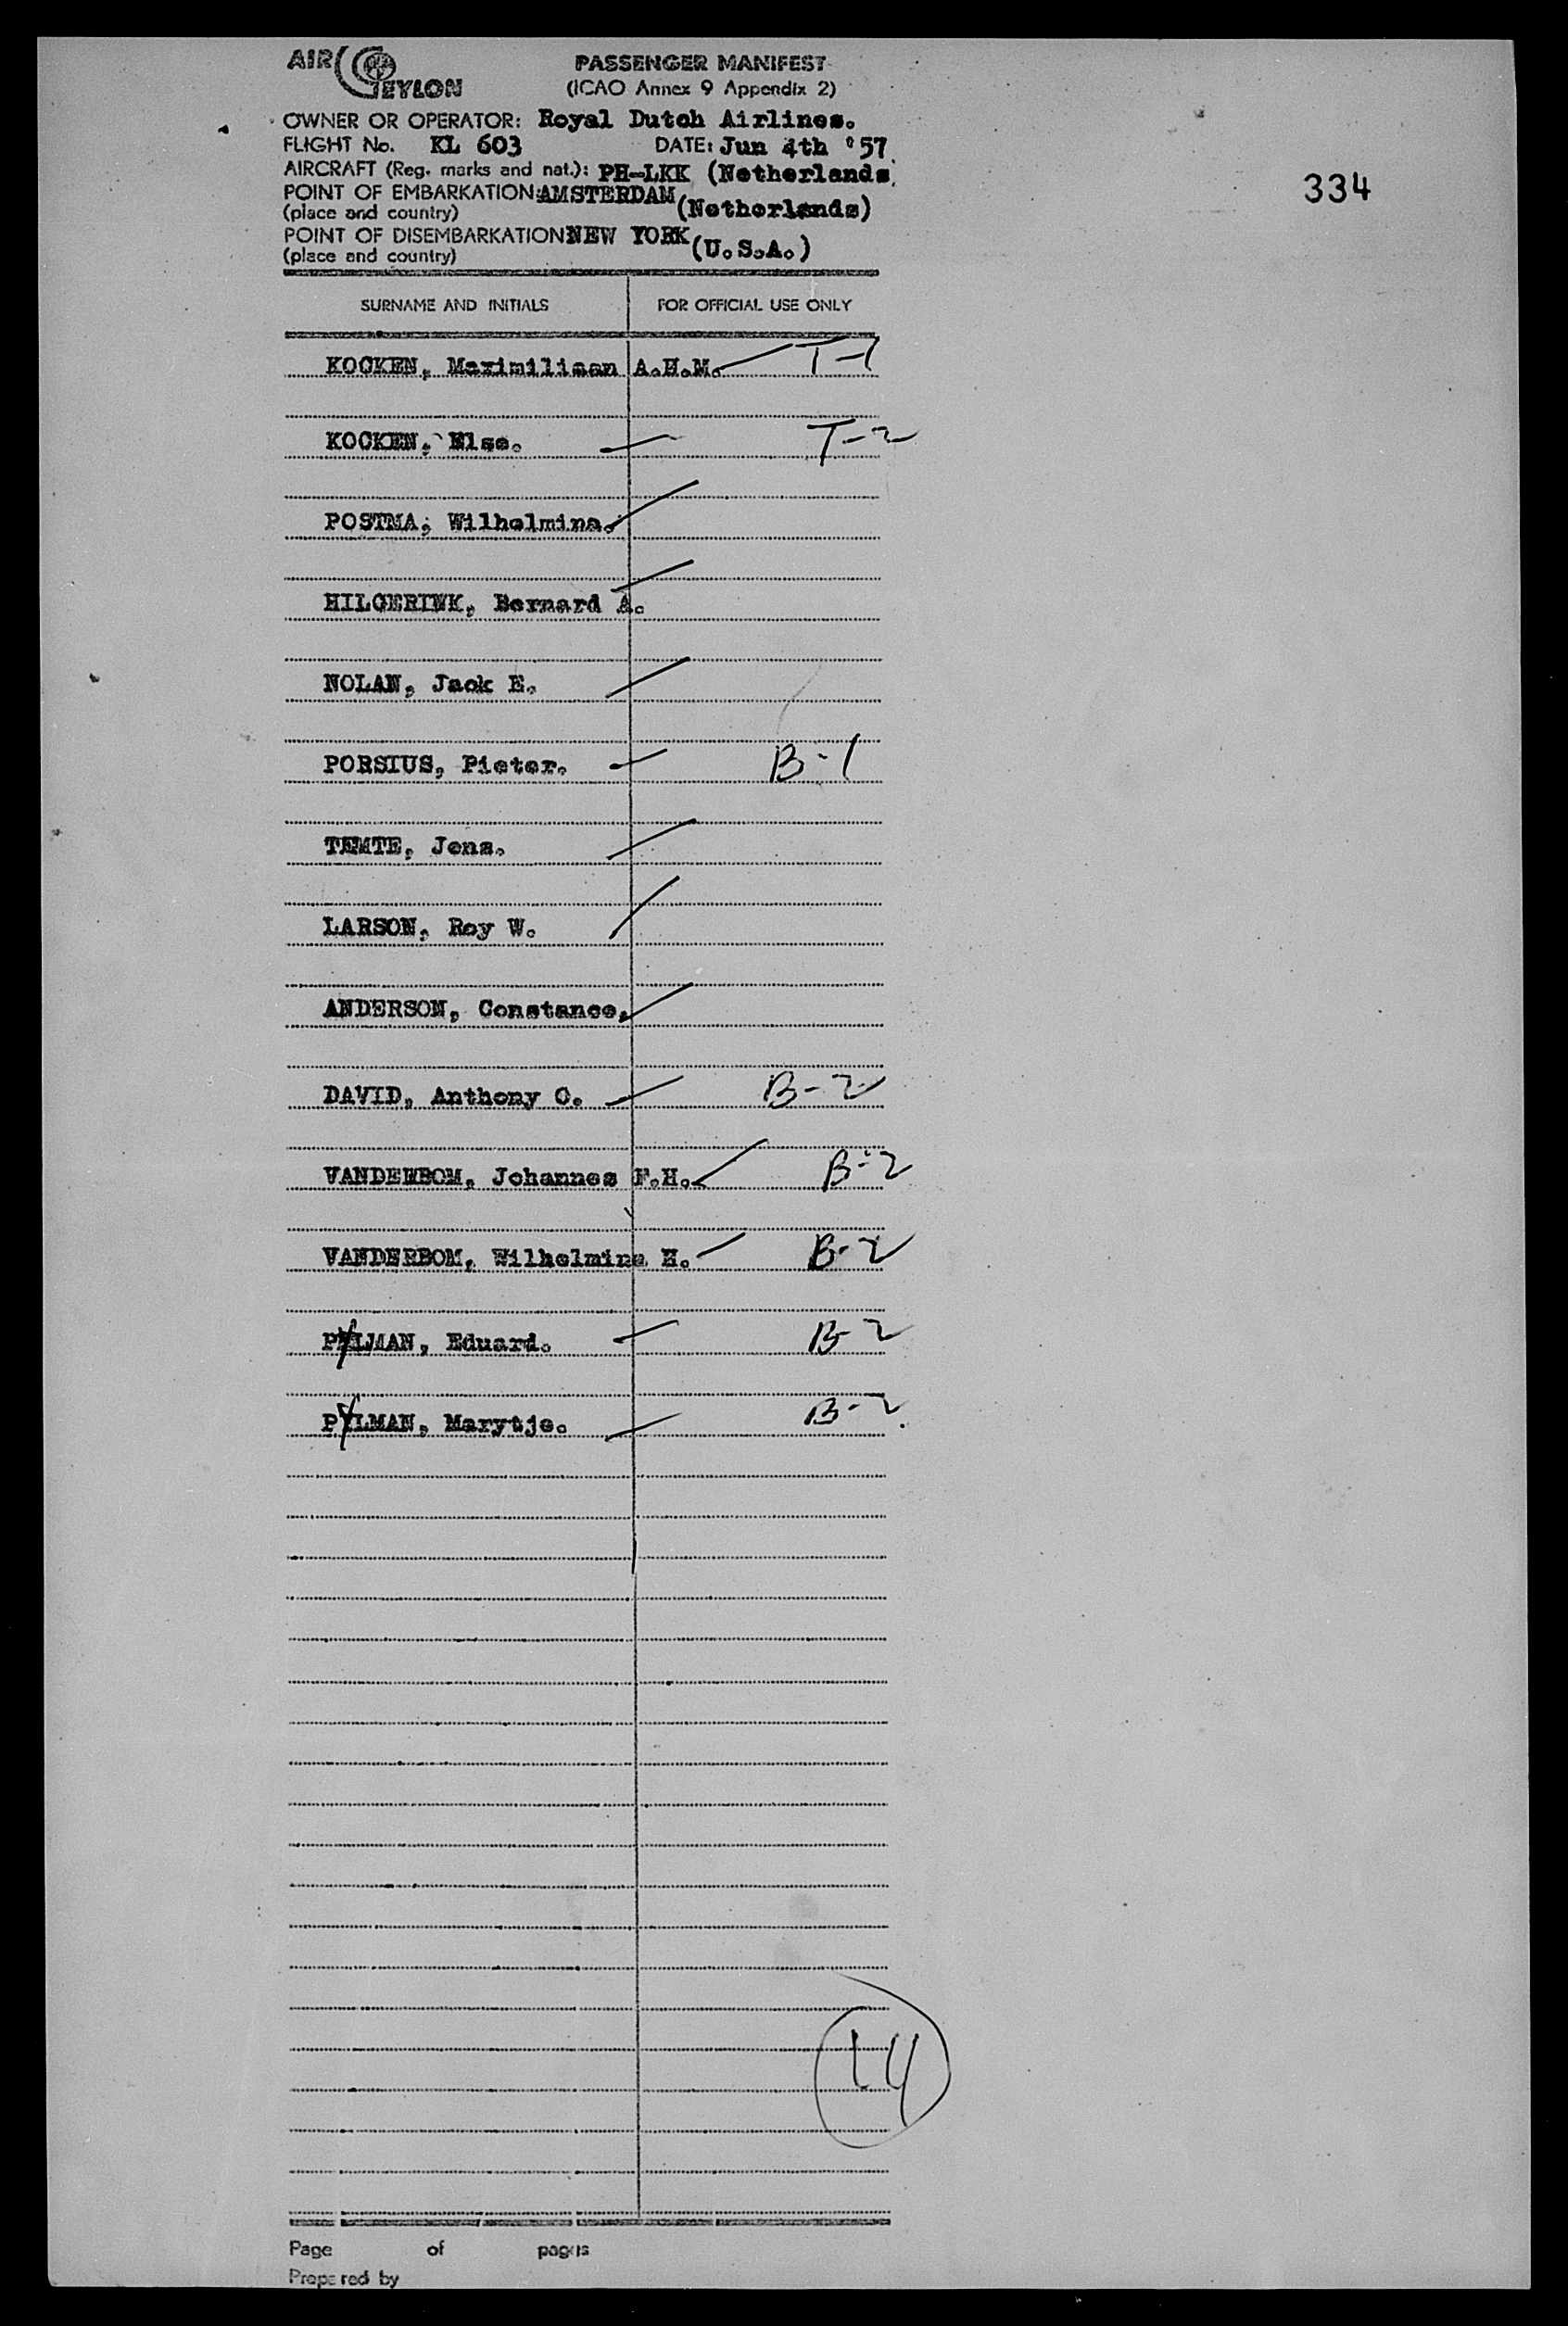 AIR CEYLON
PASSENGER MANIFEST
(ICAO Annex 9 Appendix 2)
OWNER OR OPERATOR: Royal Dutch Airlines.
FLIGHT No. KL 603 DATE: Jun 4th '57
AIRCRAFT (Reg. marks and nat.): PH-LKK (Netherlands
334
POINT OF EMBARKATION: AMSTERDAM (Netherlands)
(place and country)
POINT OF DISEMBARKATION NEW YORK (U.S.A.)
(place and country)
SURNAME AND INITIALS FOR OFFICIAL USE ONLY
KOCKEN, Maximiliaan A.H.M. T-1
KOCKEN, Else. T-2
POSTMA, Wilhelmina.
HILGERINK, Bernard A.
NOLAN, Jack E.
PORSIUS, Pieter. B-1
TEMTE, Jens.
LARSON, Roy W.
ANDERSON, Constance,
DAVID, Anthony C. B-2
VANDERBOM, Johannes F.H. B-2
VANDERBOM, Wilhelmina H. B-2
PYLMAN, Eduard. B-2
PYLMAN, Marytje. B-2
14
Page of pages
Prepared by